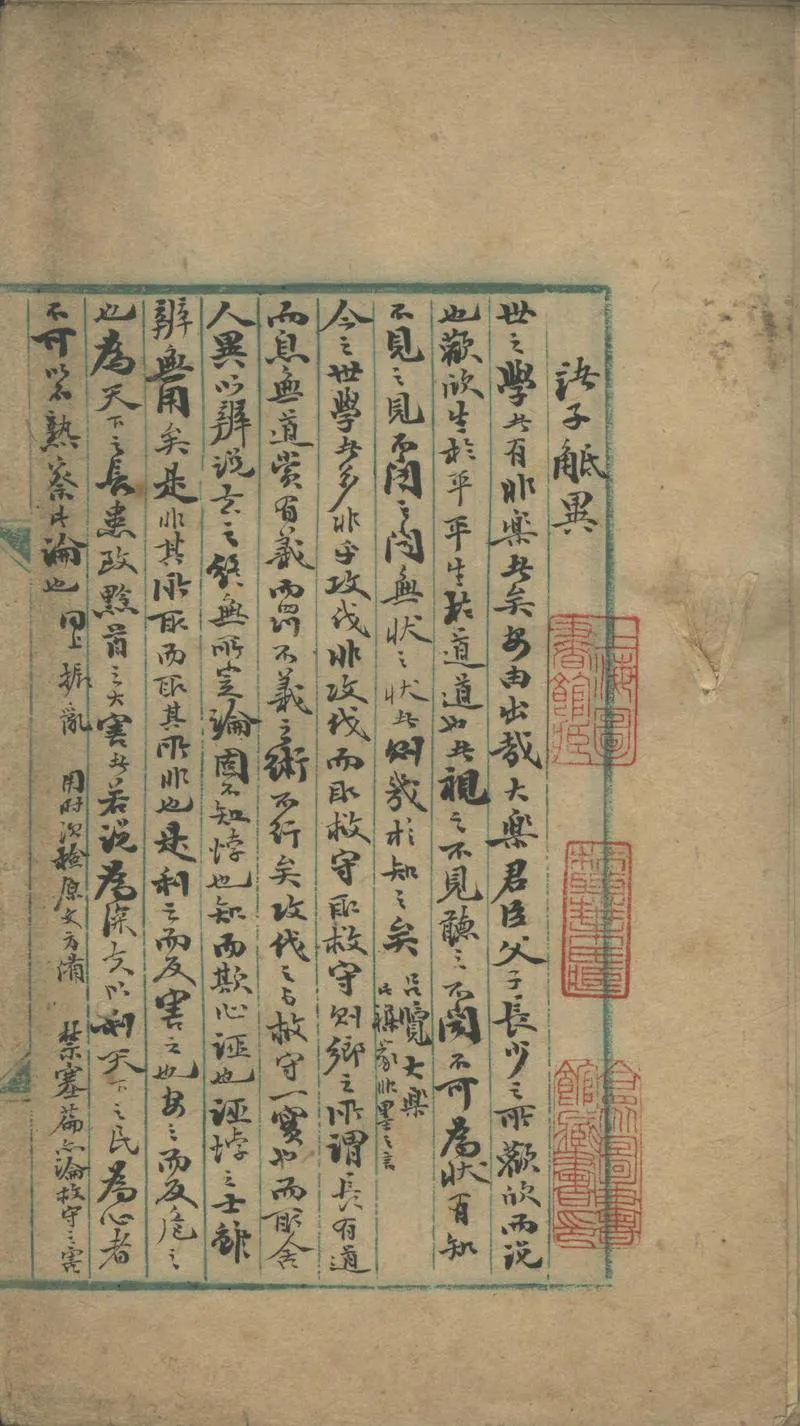 諸子觝異
世之學者有非樂者矣安由出哉大樂君臣父子長少之所歡欣而說
也歡欣生於平平生於道道也者視之不見聽之不聞不可為狀有知
不見之見不聞之聞無狀之狀者則幾於知之矣 呂覽大樂
此穪家非墨之言
今之世學者多非乎攻伐非攻伐而取救守取救守則鄉之所謂長有道
而息無道賞有義而罰不義之術不行矣攻伐之与救守一實也而取舍
人異以辨說去之終無所定論固不知悖也知而欺心誣也誣悖之士雖
辨無用矣是非其所取而取其所非也是利之而反害之也安之而反危之
也為天下之長患致黔首之大害者若說為深夫以利天下之民為心者
不可以不熟察此論也 同上振亂 用时须檢原文方備 禁塞篇亦論救守之害
上海圖書館藏